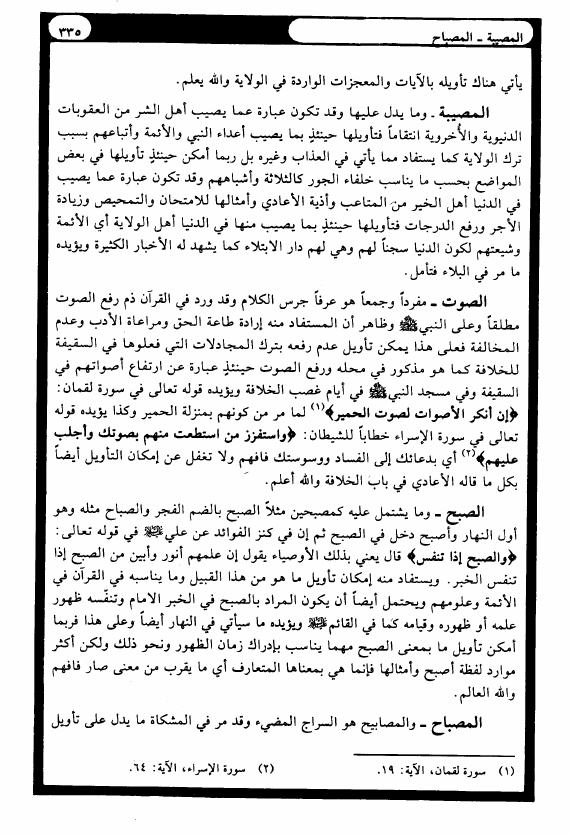 المصيبة - المصباح
٣٣٥
يأتي هناك تأويله بالآيات والمعجزات الواردة في الولاية والله يعلم.
المصيبة - وما يدل عليها وقد تكون عبارة عما يصيب أهل الشر من العقوبات
الدنيوية والأُخروية انتقاماً فتأويلها حينئذٍ بما يصيب أعداء النبي والأئمة وأتباعهم بسبب
ترك الولاية كما يستفاد مما يأتي في العذاب وغيره بل ربما أمكن حينئذٍ تأويلها في بعض
المواضع بحسب ما يناسب خلفاء الجور كالثلاثة وأشباههم وقد تكون عبارة عما يصيب
في الدنيا أهل الخير من المتاعب وأذية الأعادي وأمثالها للامتحان والتمحيص وزيادة
الأجر ورفع الدرجات فتأويلها حينئذٍ بما يصيب منها في الدنيا أهل الولاية أي الأئمة
وشيعتهم لكون الدنيا سجناً لهم وهي لهم دار الابتلاء كما يشهد له الأخبار الكثيرة ويؤيده
ما مر في البلاء فتأمل.
الصوت - مفرداً وجمعاً هو عرفاً جرس الكلام وقد ورد في القرآن ذم رفع الصوت
مطلقاً وعلى النبي ﷺ وظاهر أن المستفاد منه إرادة طاعة الحق ومراعاة الأدب وعدم
المخالفة فعلى هذا يمكن تأويل عدم رفعه بترك المجادلات التي فعلوها في السقيفة
للخلافة كما هو مذكور في محله ورفع الصوت حينئذٍ عبارة عن ارتفاع أصواتهم في
السقيفة وفي مسجد النبي ﷺ في أيام غصب الخلافة ويؤيده قوله تعالى في سورة لقمان:
﴿إن أنكر الأصوات لصوت الحمير﴾(١) لما مر من كونهم بمنزلة الحمير وكذا يؤيده قوله
تعالى في سورة الإسراء خطاباً للشيطان: ﴿واستفزز من استطعت منهم بصوتك وأجلب
عليهم﴾(٢) أي بدعائك إلى الفساد ووسوستك فافهم ولا تغفل عن إمكان التأويل أيضاً
بكل ما قاله الأعادي في باب الخلافة والله أعلم.
الصبح - وما يشتمل عليه كمصبحين مثلاً الصبح بالضم الفجر والصباح مثله وهو
أول النهار وأصبح دخل في الصبح ثم إن في كنز الفوائد عن علي في قوله تعالى:
﴿والصبح إذا تنفس﴾ قال يعني بذلك الأوصياء يقول إن علمهم أنور وأبين من الصبح إذا
تنفس الخبر. ويستفاد منه إمكان تأويل ما هو من هذا القبيل وما يناسبه في القرآن في
الأئمة وعلومهم ويحتمل أيضاً أن يكون المراد بالصبح في الخبر الامام وتنفّسه ظهور
علمه أو ظهوره وقيامه كما في القائم ويؤيده ما سيأتي في النهار أيضاً وعلى هذا فربما
أمكن تأويل ما بمعنى الصبح مهما يناسب بإدراك زمان الظهور ونحو ذلك ولكن أكثر
موارد لفظة أصبح وأمثالها فإنما هي بمعناها المتعارف أي ما يقرب من معنى صار فافهم
والله العالم.
المصباح - والمصابيح هو السراج المضيء وقد مر في المشكاة ما يدل على تأويل
(١) سورة لقمان، الآية: ١٩. (٢) سورة الإسراء، الآية: ٦٤.